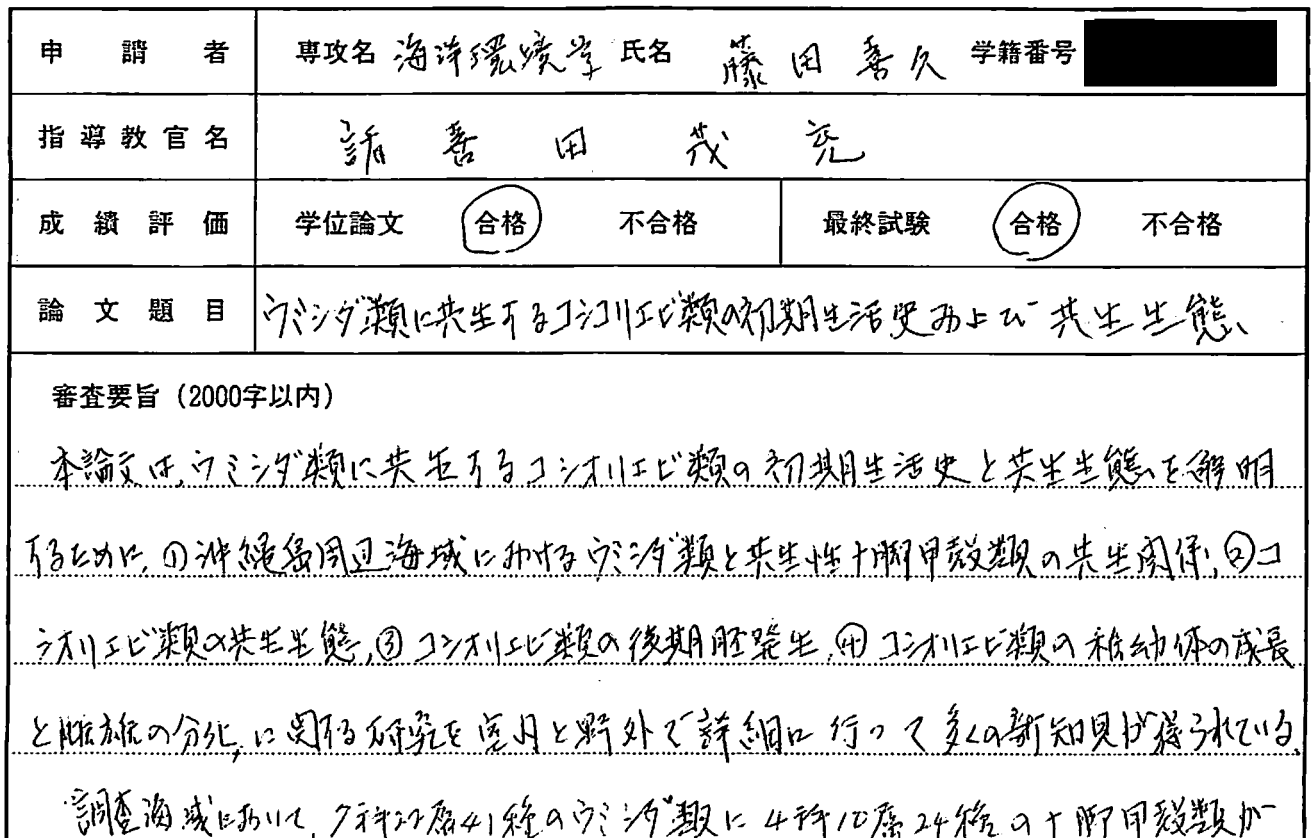 申請者 専攻名 海洋環境学 氏名 藤田喜久 学籍番号
指導教官名 諸喜田茂充
成績評価 学位論文 合格 不合格 最終試験 合格 不合格
論文題目 ウミシダ類に共生するコシオリエビ類の初期生活史および共生生態
審査要旨(2000字以内)
本論文は,ウミシダ類に共生するコシオリエビ類の初期生活史と共生生態を解明
するために,①沖縄島周辺海域におけるウミシダ類と共生性十脚甲殻類の共生関係,②コ
シオリエビ類の共生生態,③コシオリエビ類の後期胚発生,④コシオリエビ類の稚幼体の成長
と雌雄の分化,に関する研究を室内と野外で詳細に行って多くの新知見が得られている.
調査海域において,7科22属41種のウミシダ類に4科10属24種の十脚甲殻類が